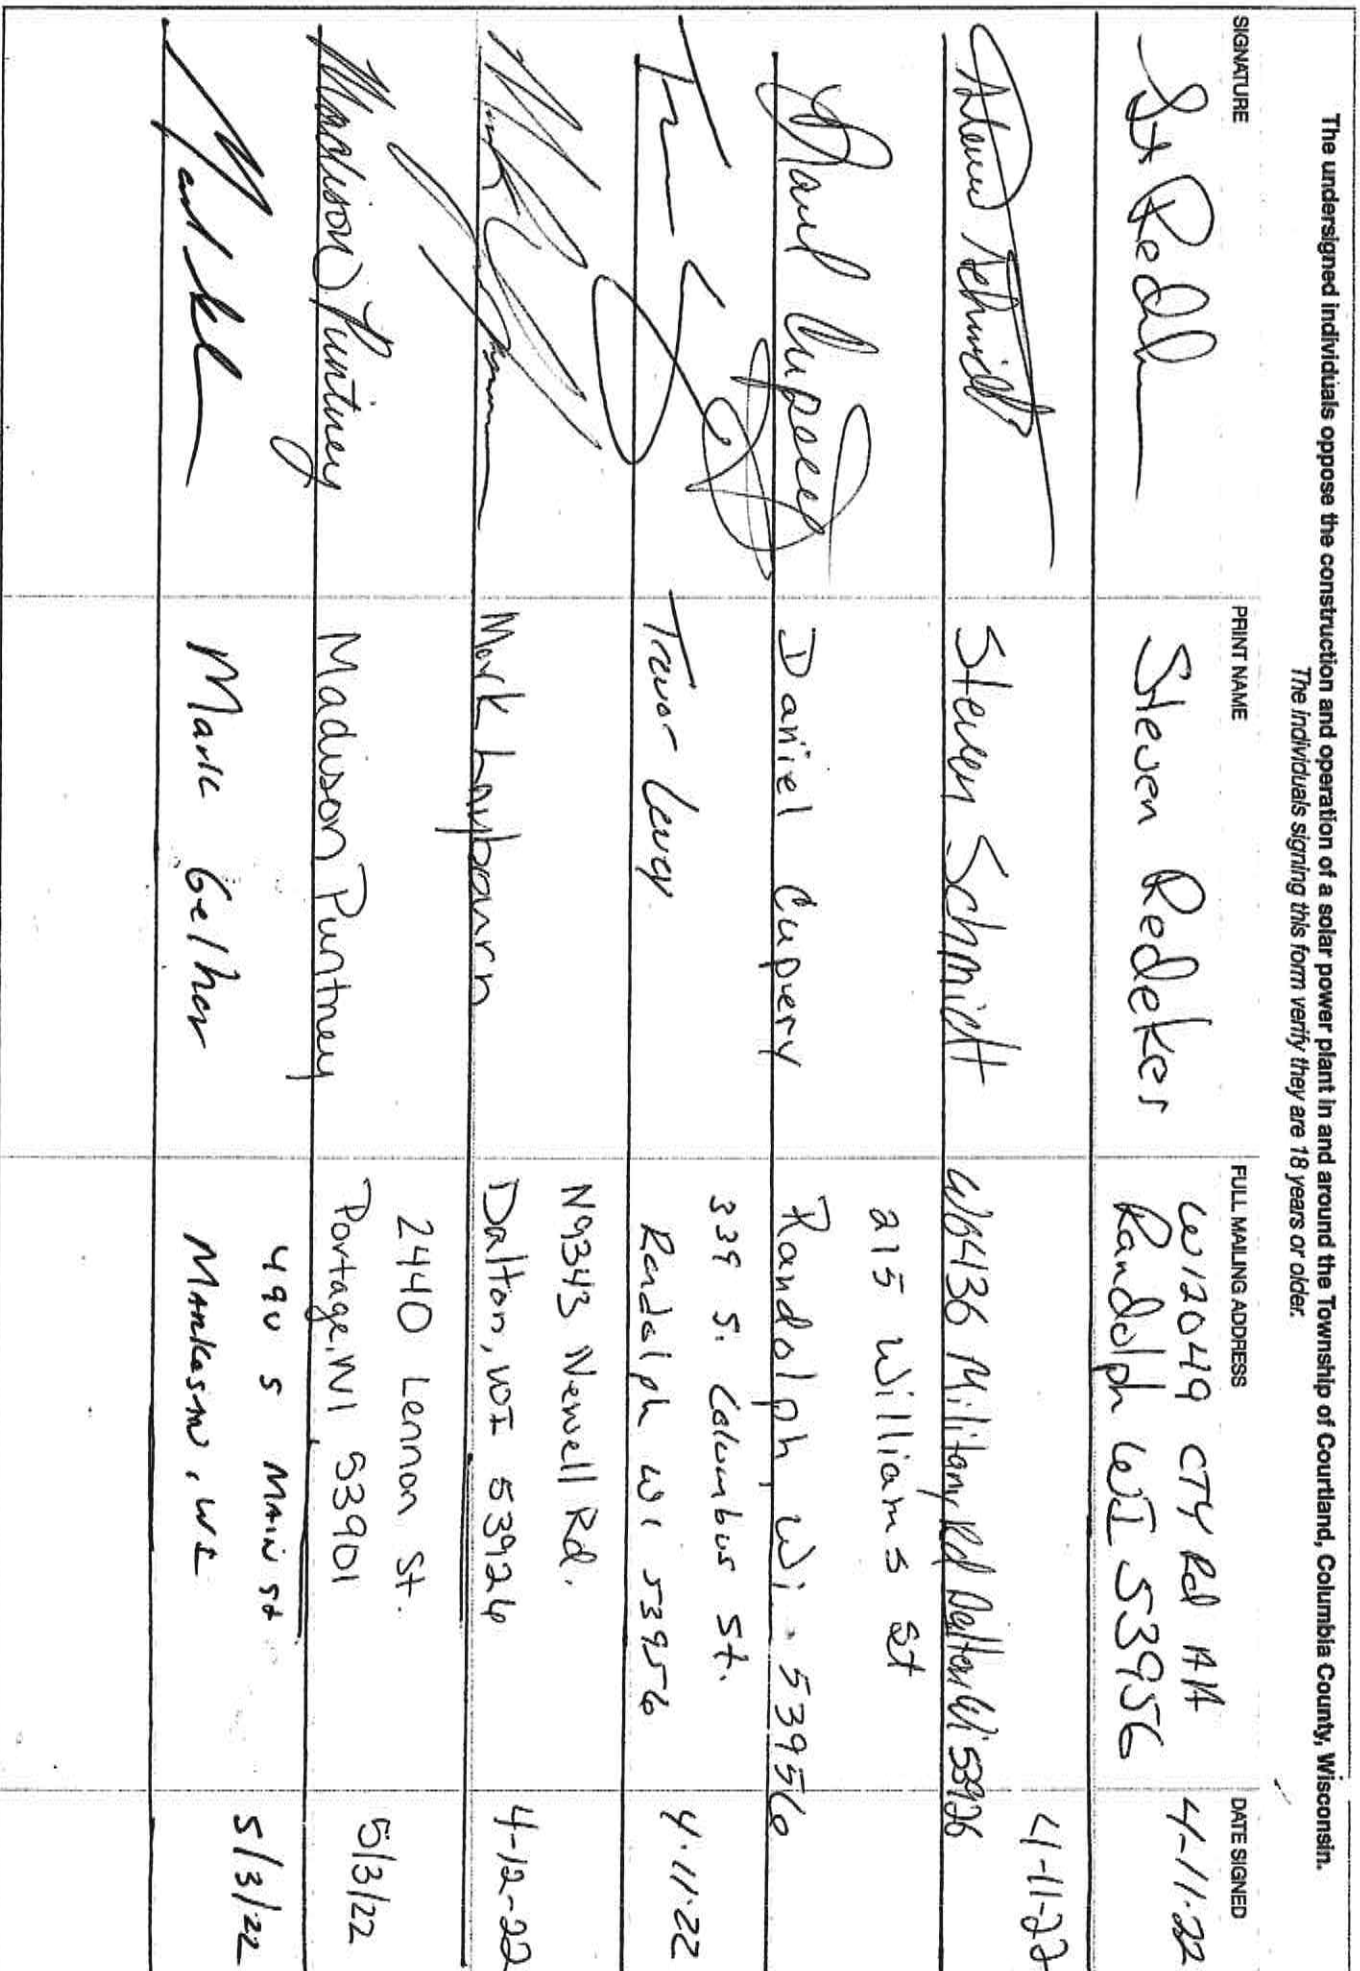 The undersigned individuals oppose the construction and operation of a solar power plant in and around the Township of Courtland, Columbia County, Wisconsin.
The individuals signing this form verify they are 18 years or older.
SIGNATURE PRINT NAME FULL MAILING ADDRESS DATE SIGNED
Steven Redeker W12049 CTY Rd AA 4-11-22
Randolph WI 53956
Steven Schmidt Steven Schmidt W6436 Military Rd Dalton Wi 53926 4-11-22
Daniel Cupery Daniel Cupery 215 Williams St
Randolph Wi. 53956
Trevor Levey 339 S. Columbus St. 4.11.22
Randolph WI 53956
Mark Laybourn N9343 Newell Rd. 4-12-22
Dalton, WI 53926
Madison Puntney Madison Puntney 2440 Lennon St. 5/3/22
Portage, WI 53901
Mark Gelhar 490 S MAIN St 5/3/22
MARKESAN, WI